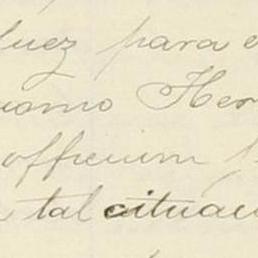 luez para e
uomo Her
offrerum
tal cituaci